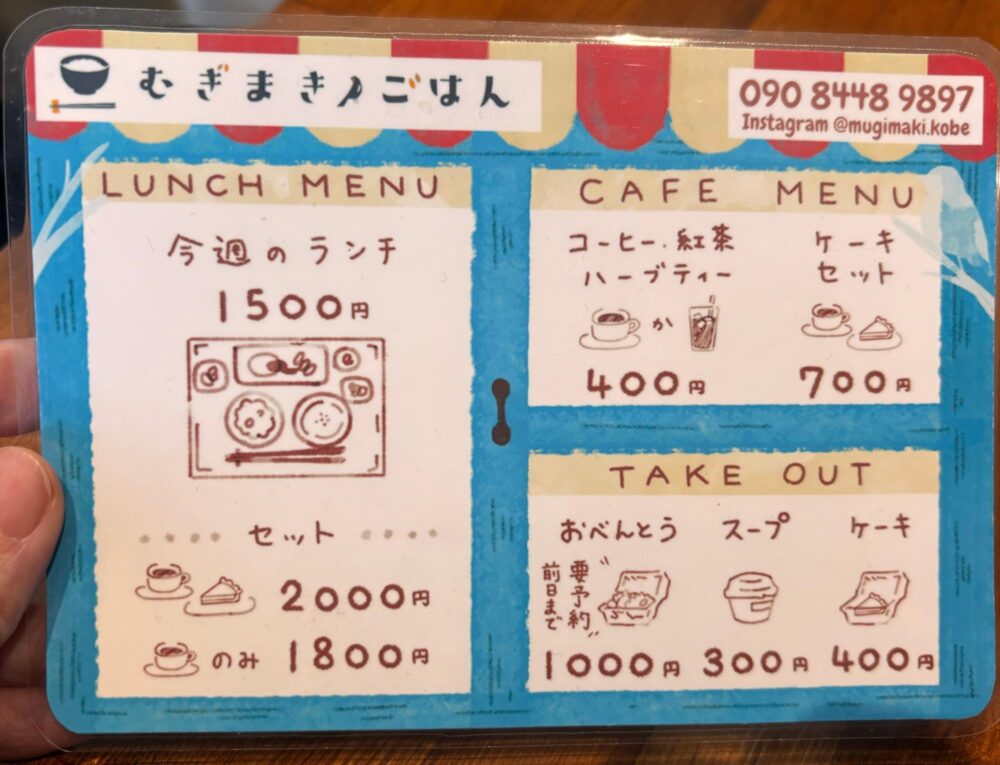 むぎまき♪ごはん
090 8448 9897
Instagram @mugimaki.kobe
LUNCH MENU
今週のランチ
1500円
セット
2000円
のみ 1800円
CAFE MENU
コーヒー・紅茶
ハーブティー
か
400円
ケーキ
セット
700円
TAKE OUT
おべんとう
"要予約"
前日まで
1000円
スープ
300円
ケーキ
400円